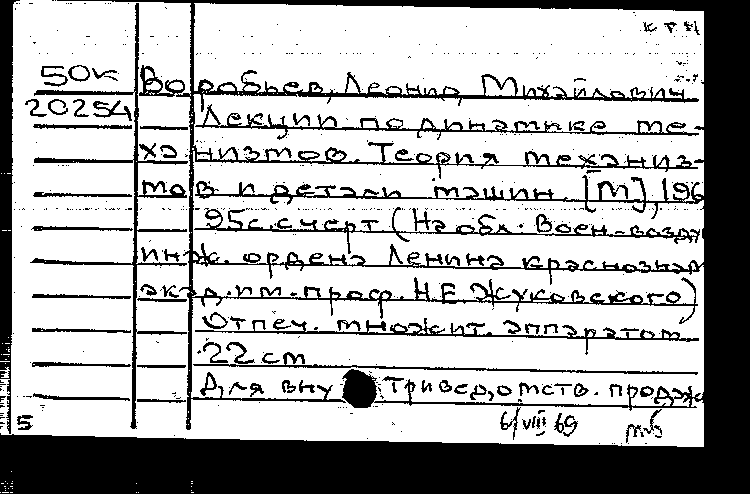 КРИ
50к Воробьев, Леонид Михайлович
20254 Лекции по динамике ме-
ханизмов. Теория механиз-
мов и детали машин. [М], 196
95с. с черт (На обл. Воен-возду
инж. ордена Ленина краснознам
акад. им. проф. Н.Е. Жуковского)
Отпеч. множит. аппаратом
22 см
Для вну триведомств. продаж
5 6/VIII 69